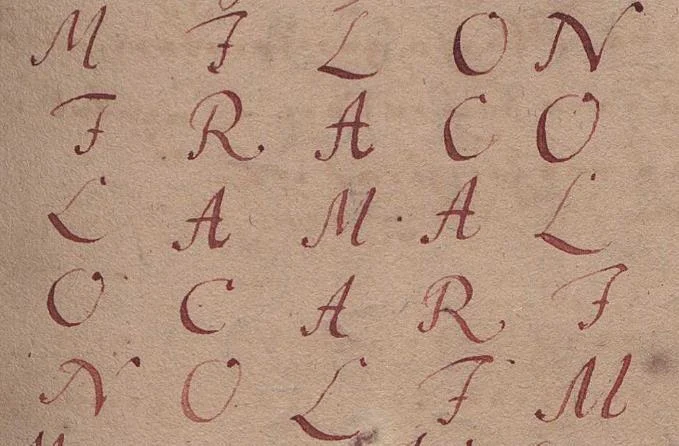 M I L O N
I R A C O
L A M A L
O C A R I
N O L I M